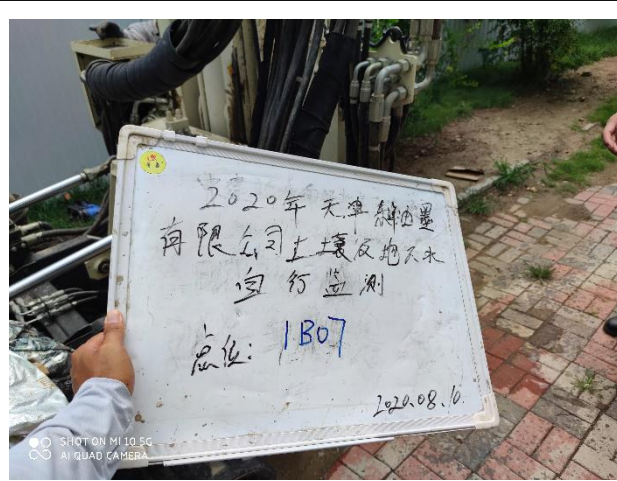 2020年天津东洋油墨
有限公司土壤及地下水
自行监测
点位：1B07
2020.08.10.
SHOT ON MI 10 5G
AI QUAD CAMERA